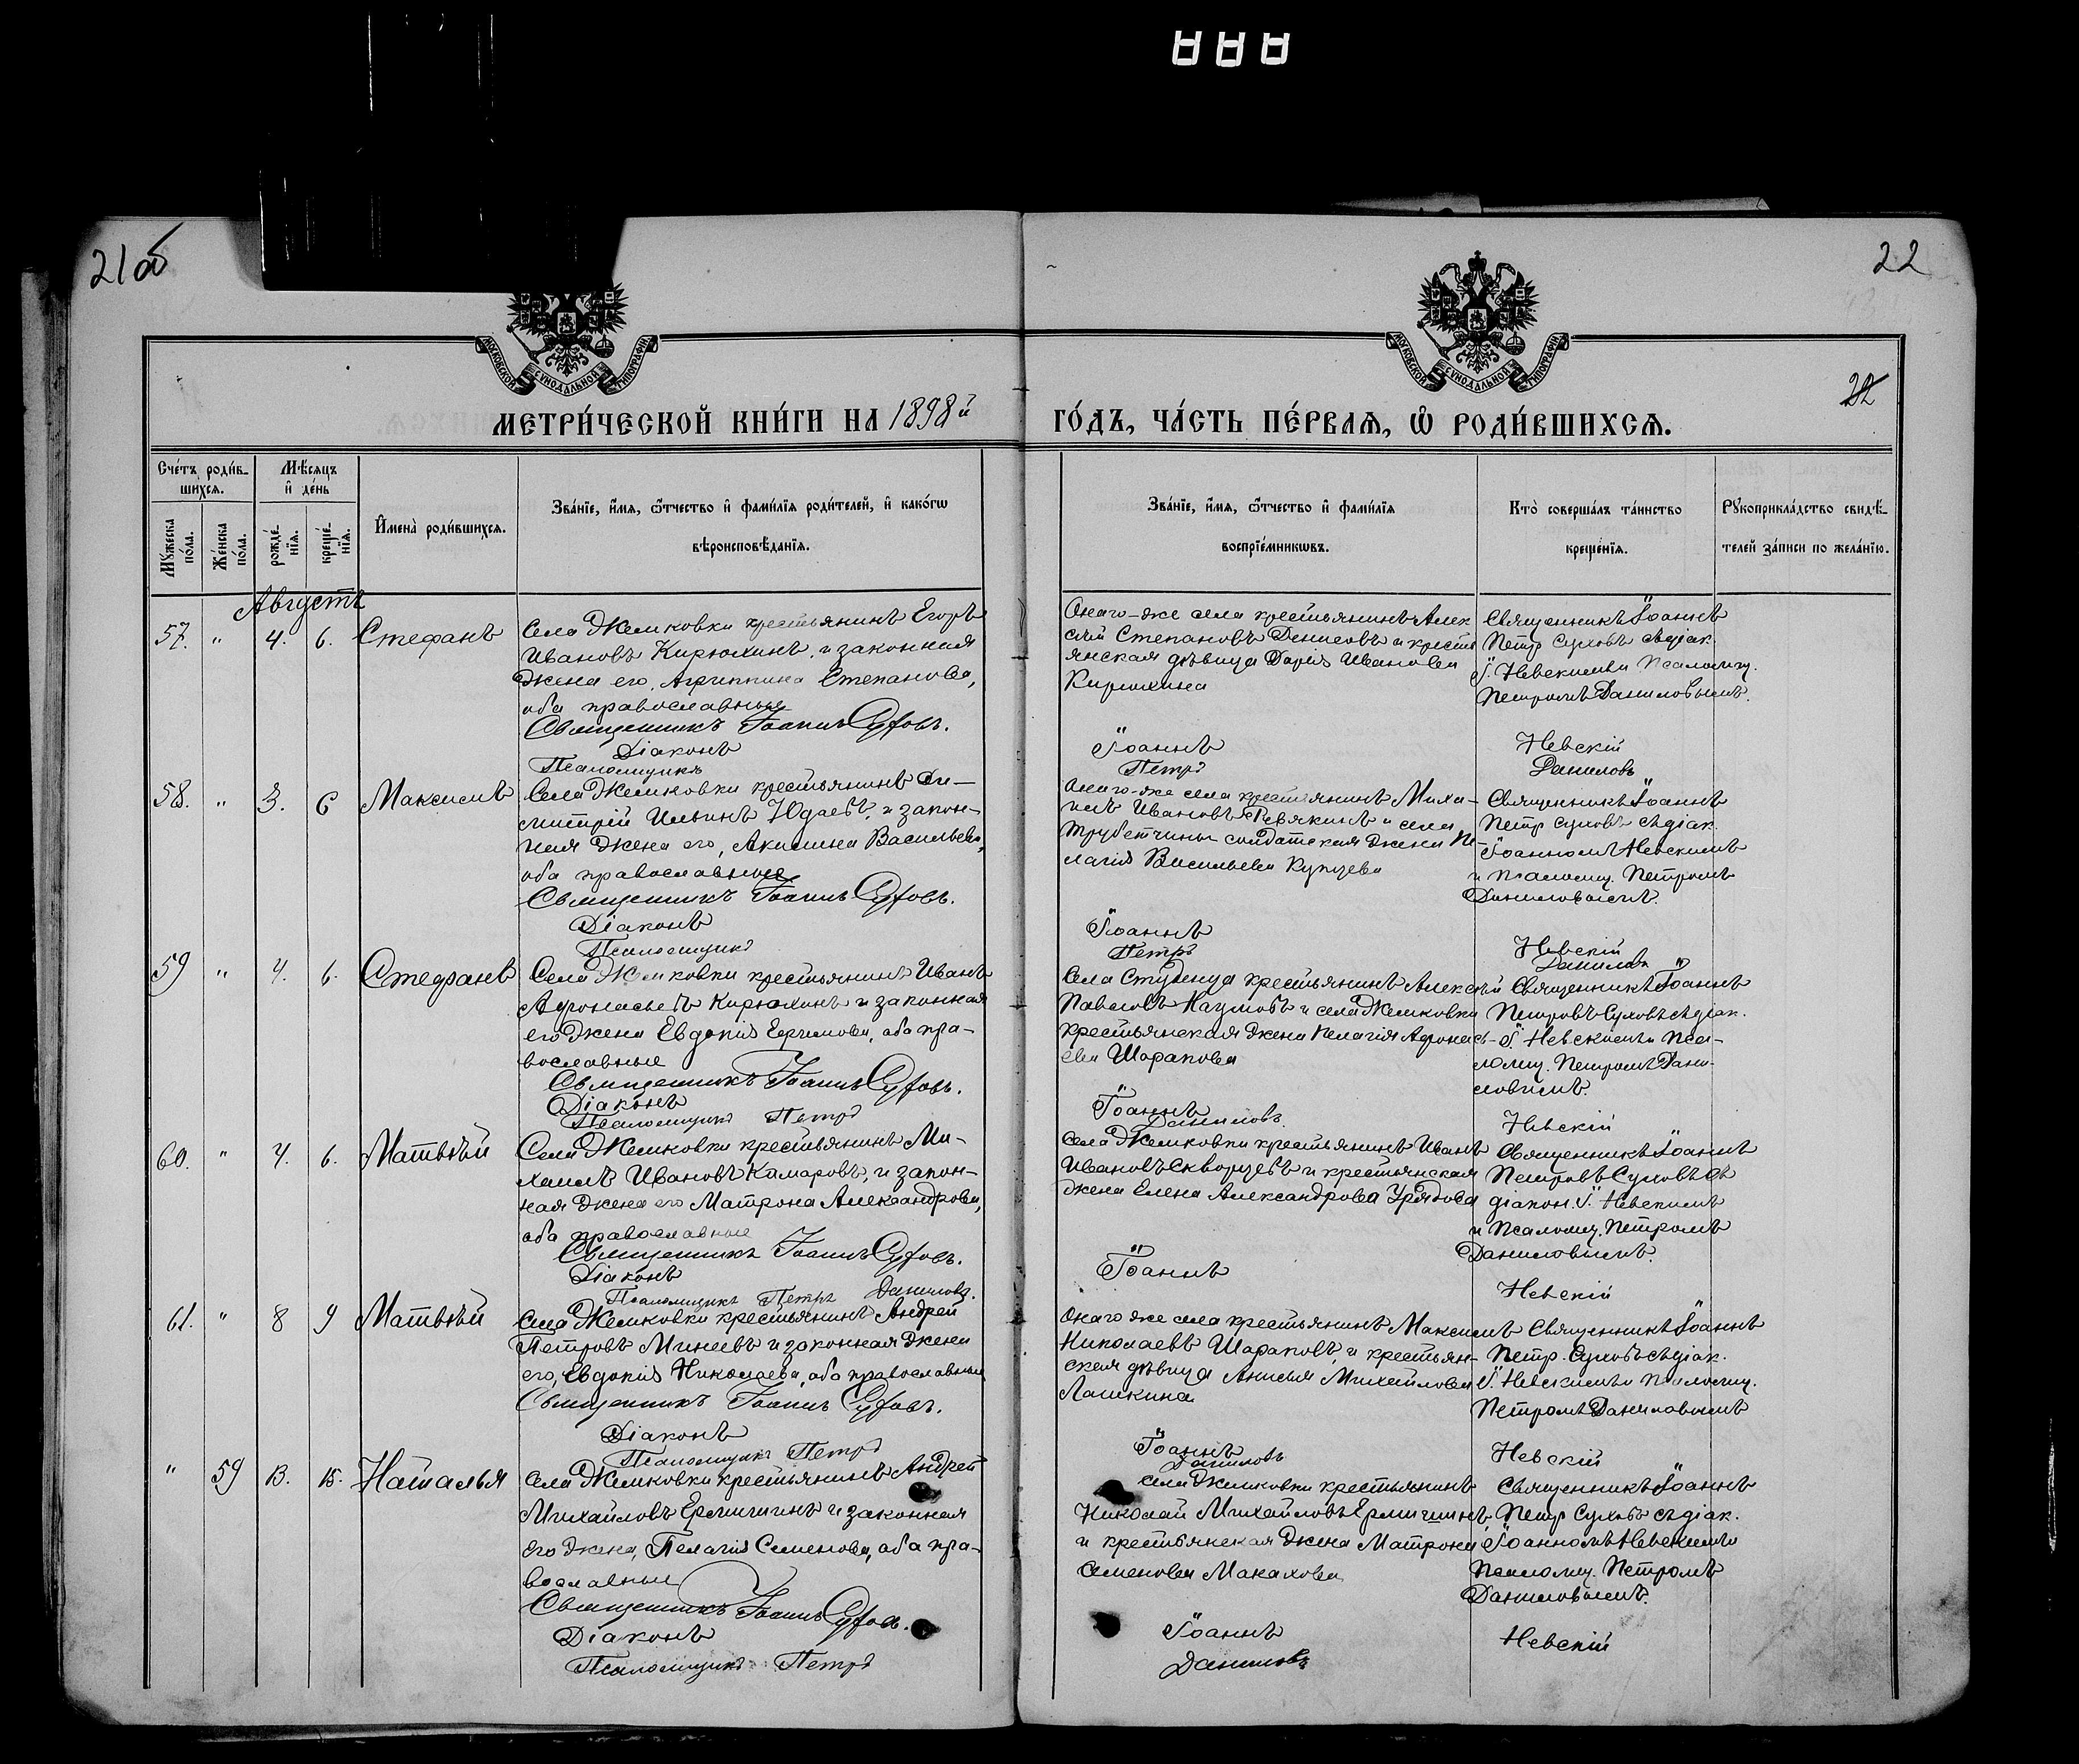 21об
22
МОСКОВСКОЙ СУНОДАЛЬНОЙ ТИПОГРАФІИ
МОСКОВСКОЙ СУНОДАЛЬНОЙ ТИПОГРАФІИ
22
МЕТРИ́ЧЕСКОЙ КНИ́ГИ НА 1898й
ГО́ДЪ, ЧА́СТЬ ПЕ́РВАѦ, Ѽ РОДИ́ВШИХСѦ.
Сче́тъ роди́в-
шихсѧ.
Мѣ́сѧцъ
и҆ де́нь
Мꙋ́жеска по́ла.
Же́нска по́ла.
рожде́-
нїѧ.
креще́-
нїѧ.
И҆мена̀ роди́вшихсѧ.
Зва́нїе, и҆́мѧ, ѻ҆́тчество и҆ фами́лїѧ роди́телей, и҆ како́гѡ
вѣроисповѣ́данїѧ.
Зва́нїе, и҆́мѧ, ѻ҆́тчество и҆ фами́лїѧ
воспрїе́мникѡвъ.
Кто̀ соверша́лъ та́инство
креще́нїѧ.
Рꙋкоприкла́дство свидѣ́-
телей за́писи по жела́нїю.
Августъ
57. " 4. 6. Стефанъ
Села Жемковки крестьянинъ Егоръ
Ивановъ Кирюхинъ, и законная
жена его, Агриппина Степанова,
оба православные
Священникъ Іоаннъ Суховъ.
Діаконъ
Псаломщикъ
Онаго-же села крестьянинъ Алек
сѣй Степановъ Денисовъ и крестьянская дѣвица Дарія Иванова
Кирюхина
Іоаннъ
Петръ
Священникъ Іоаннъ
Петр Суховъ съ діак.
І. Невскимъ и псаломщ.
Петромъ Даниловымъ.
Невскій
Даниловъ
58. " 3. 6 Максимъ
Села Жемковки крестьянинъ Ди-
митрій Ильинъ Юдаевъ, и закон-
ная жена его, Акилина Васильева,
оба православные
Священникъ Іоаннъ Суховъ.
Діаконъ
Псаломщикъ
Онаго-же села крестьянинъ Миха-
илъ Ивановъ Ревякинъ и села
Трубетчины солдатская жена Пе-
лагія Васильева Купцова
Іоаннъ
Петръ
Священникъ Іоаннъ
Петр Суховъ съ діак.
Іоанномъ Невскимъ
и псаломщ. Петромъ
Даниловымъ.
Невскій
Даниловъ
59 " 4. 6. Стефанъ
Села Жемковки крестьянинъ Иванъ
Афонасьевъ Кирюхинъ и законная
его жена Евдокія Ефимова, оба пра-
вославные
Священникъ Іоаннъ Суховъ.
Діаконъ
Псаломщикъ Петръ
Села Студенца крестьянинъ Алексѣй
Павловъ Наумовъ и села Жемковки
крестьянская жена Пелагія Афонась-
ева Шарапова
Іоаннъ
Даниловъ.
Священникъ Іоаннъ
Петровъ Суховъ съ діак.
І. Невскимъ и пса-
ломщ. Петромъ Дани-
ловымъ.
Невскій
60. " 4. 6. Матвѣй
Села Жемковки крестьянинъ Ми-
хаилъ Ивановъ Камаровъ, и закон-
ная жена его Матрона Александрова,
оба православные
Священникъ Іоаннъ Суховъ.
Діаконъ
Псаломщикъ Петръ Даниловъ.
Села Жемковки крестьянинъ Иванъ
Ивановъ Скворцовъ и крестьянская
жена Елена Александрова Урядова
Іоаннъ
Священникъ Іоаннъ
Петровъ Суховъ съ
діакон. І. Невскимъ
и псаломщ. Петромъ
Даниловымъ.
Невскій
61. " 8 9 Матвѣй
Села Жемковки крестьянинъ Андрей
Петровъ Минеевъ и законная жена
его, Евдокія Николаева, оба православные
Священникъ Іоаннъ Суховъ.
Діаконъ
Псаломщикъ Петръ
Онаго же села крестьянинъ Максимъ
Николаевъ Шараповъ, и крестьян-
ская дѣвица Анисья Михайлова
Лашкина
Іоаннъ
Даниловъ
Священникъ Іоаннъ
Петр. Суховъ съ діак.
І. Невскимъ и псаломщ.
Петромъ Даниловымъ
Невскій
" 59 13. 15. Наталья
Села Жемковки крестьянинъ Андрей
Михайловъ Ермишинъ и законная
его жена, Пелагія Семенова, оба пра-
вославные
Священникъ Іоаннъ Суховъ.
Діаконъ
Псаломщикъ Петръ
Села Жемковки крестьянинъ
Николай Михайловъ Ермишинъ
и крестьянская жена Матрона
Семенова Макахова
Іоаннъ
Даниловъ
Священникъ Іоаннъ
Петр Суховъ съ діак.
Іоанномъ Невскимъ и
псаломщ. Петромъ
Даниловымъ.
Невскій